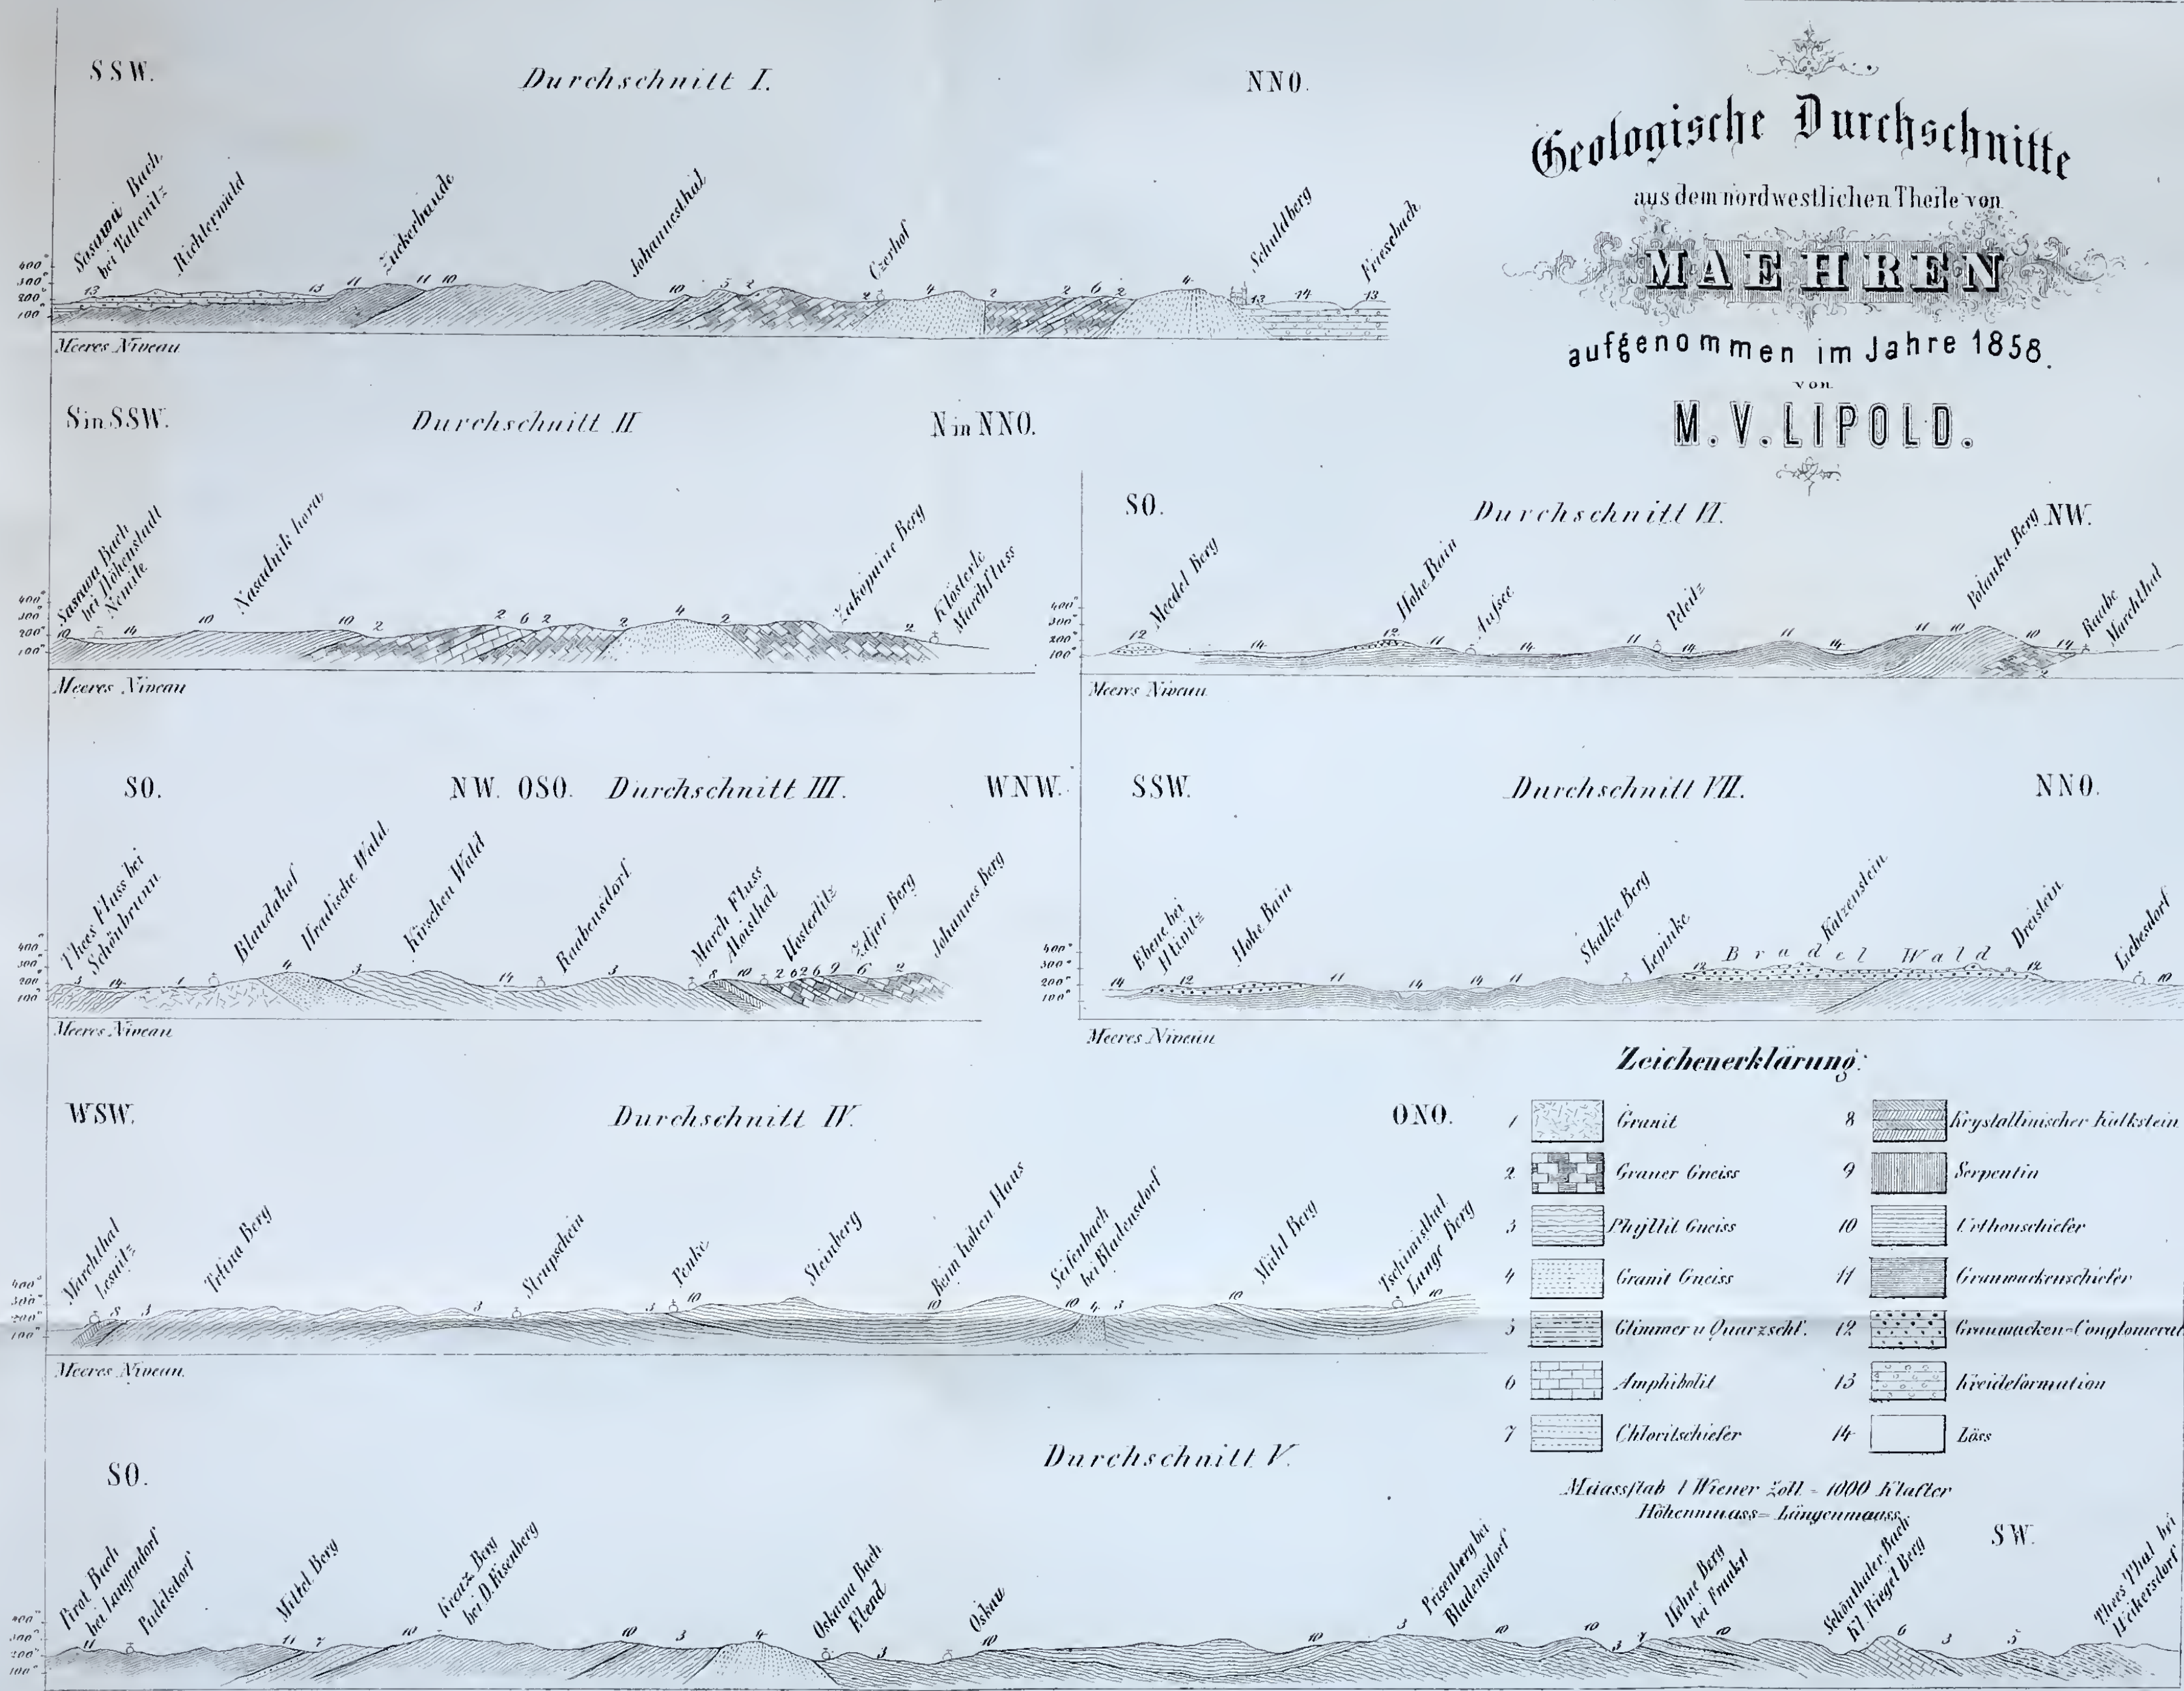 SSW.
Durchschnitt I.
NNO.
Sasawa Bach
bei Tattenitz
Richterwald
Zuckerbaude
Johannesthal
Czerhof
Schuldberg
Friesebach
400°
300°
200°
100°
13 13 11 11 10 10 5 2 2 4 2 2 6 2 4 13 14 13
Meeres Niveau
Geologische Durchschnitte
aus dem nordwestlichen Theile von
MAEHREN
aufgenommen im Jahre 1858.
von
M. V. LIPOLD.
S in SSW.
Durchschnitt II
N in NNO.
Sasawa Bach
bei Hohenstadt
Nemile
Nasadnik hora
Zakopaine Berg
Klösterle
Marchfluss
400°
300°
200°
100°
10 14 10 10 2 2 6 2 2 4 2 2
Meeres Niveau
SO.
Durchschnitt VI.
NW.
Meedel Berg
Hohe Rain
Aussee
Peleitz
Polanka Berg
Raabe
Marchthal
400°
300°
200°
100°
12 14 12 11 14 11 14 11 14 11 10 10 14 2
Meeres Niveau
SO.
NW. OSO.
Durchschnitt III.
WNW.
Thees Fluss bei
Schönbrunn
Blaudahof
Hradische Wald
Kirschen Wald
Raabensdorf
March Fluss
Aloisthal
Hosterlitz
Zdjar Berg
Johannes Berg
400°
300°
200
100°
3 14 1 4 3 14 3 8 10 2 6 2 6 9 6 2
Meeres Niveau
SSW.
Durchschnitt VII.
NNO.
Ebene bei
Hliniz
Hohe Rain
Skalka Berg
Lepinke
Bradel Wald
Katzenstein
Dreistein
Liebesdorf
400°
300°
200°
100°
14 12 11 14 14 11 12 12 10
Meeres Niveau
WSW.
Durchschnitt IV.
ONO.
Marchthal
Lesnitz
Trlina Berg
Strupschein
Penke
Steinberg
Beim hohen Haus
Seifenbach
bei Bladensdorf
Mühl Berg
Tschimisthal
Lange Berg
400°
300°
200°
100°
8 3 3 3 10 10 10 4 3 10 10
Meeres Niveau
Zeichenerklärung:
1 Granit
2 Grauer Gneiss
3 Phyllit Gneiss
4 Granit Gneiss
5 Glimmer u Quarzschf.
6 Amphibolit
7 Chloritschiefer
8 Krystallinischer Kalkstein
9 Serpentin
10 Urthonschiefer
11 Grauwackenschiefer
12 Grauwacken-Conglomerat
13 Kreideformation
14 Löss
Maassstab 1 Wiener Zoll = 1000 Klafter
Höhenmaass = Längenmaass
SO.
Durchschnitt V.
SW.
Pirot Bach
bei Langendorf
Pudelsdorf
Mittel Berg
Kreuz Berg
bei D. Eisenberg
Oskawa Bach
Elend
Oskau
Prisenberg bei
Bladensdorf
Hohne Berg
bei Frankst
Schönthaler Bach
Kl. Riegel Berg
Thees Thal bei
Weikersdorf
400°
300°
200°
100°
11 11 7 10 10 3 4 3 10 10 3 10 10 3 10 6 3 5